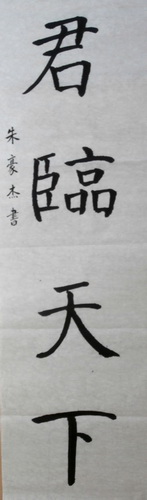 君臨天下
朱豪杰書